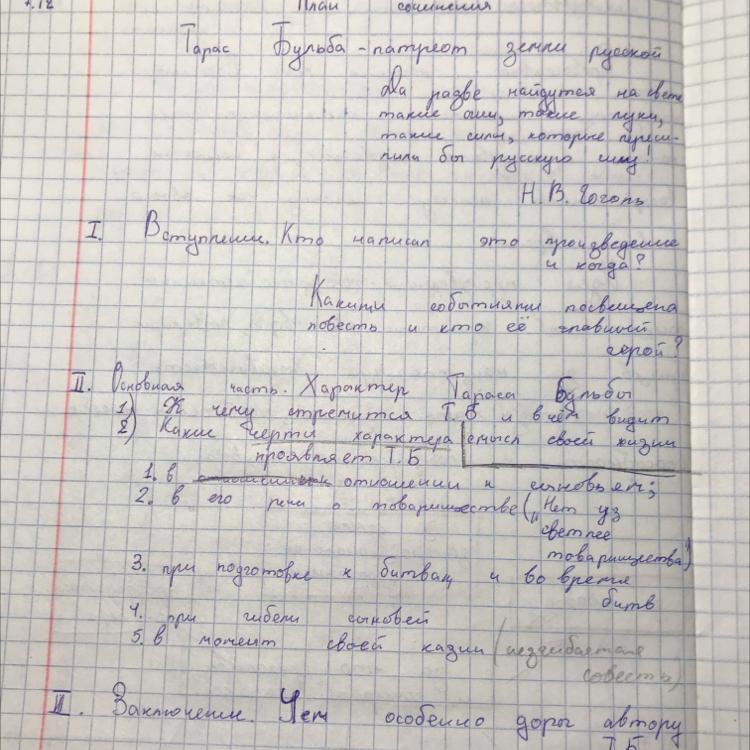 7.12 План сочинения
Тарас Бульба - патреот земли русской
Да разве найдутся на свете
такие огни, такие муки,
такие силы, которые переси-
лили бы русскую силу!
Н. В. Гоголь
I. Вступление. Кто написал это произведение
и когда?
Какими событиями посвещена
повесть и кто её главный
герой?
II. Основная часть. Характер Тараса Бульбы
1) К чему стремится Т.Б и в чём видит
2) Какие черти характера смысл своей жизни
проявляет Т.Б
1. в отношении к сыновьям;
2. в его речи о товариществе („Нет уз
светлее
товарищества)
3. при подготовке к битвам и во время
битв
4. при гибели сыновей
5. в момент своей казни (
совесть)
III. Заключение. Чем особенно дорог автору
Т.Б